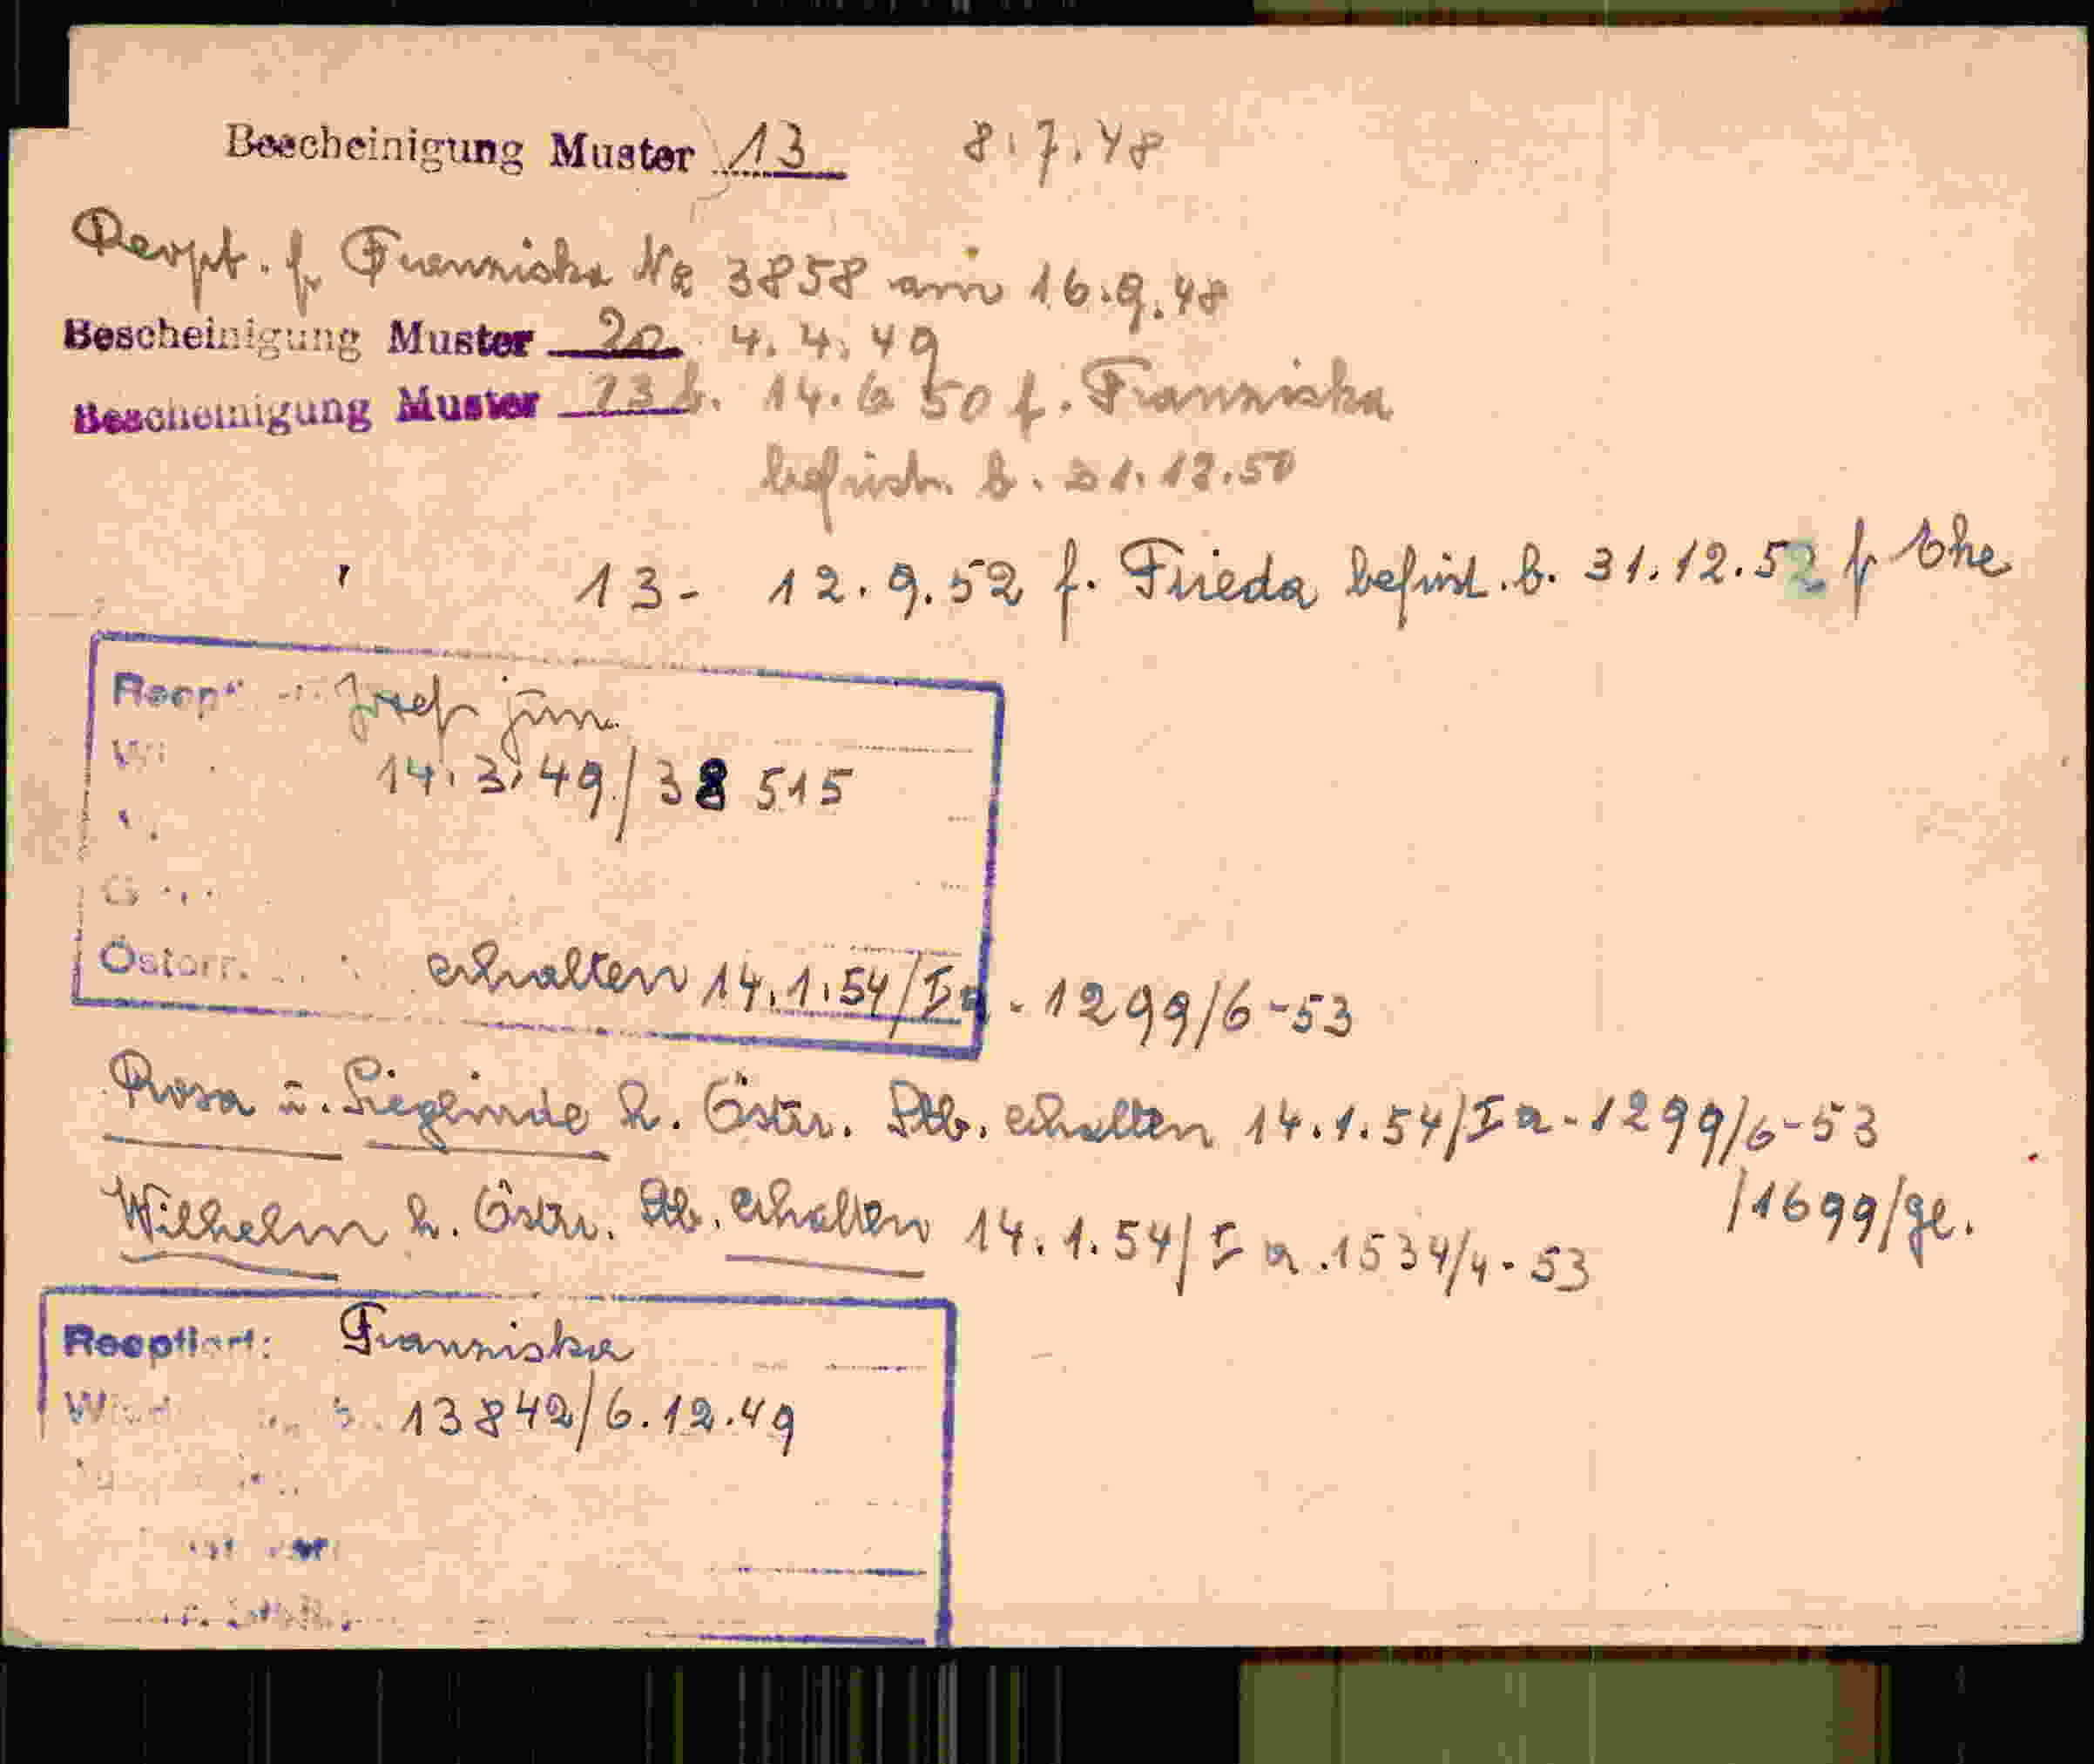 Bescheinigung Muster 13 8.7.48
Rekpt. f. Franziska Nr 3858 am 16.9.48
Bescheinigung Muster 20 4.4.49
Bescheinigung Muster 13 b. 14.6 50 f. Franziska
befrist. b. 31.12.50
" 13- 12.9.52 f. Frieda befrist. b. 31.12.52 f Ehe
Josef jun.
14.3.49/38 515
Österr. erhalten 14.1.54/Ia - 1299/6-53
Rosa u. Sieglinde h. Östr. Stb. erhalten 14.1.54/Ia-1299/6-53
/1699/ge.
Wilhelm h. Östr. Stb. erhalten 14.1.54/Ia.1534/4-53
Reoptiert: Franziska
13842/6.12.49